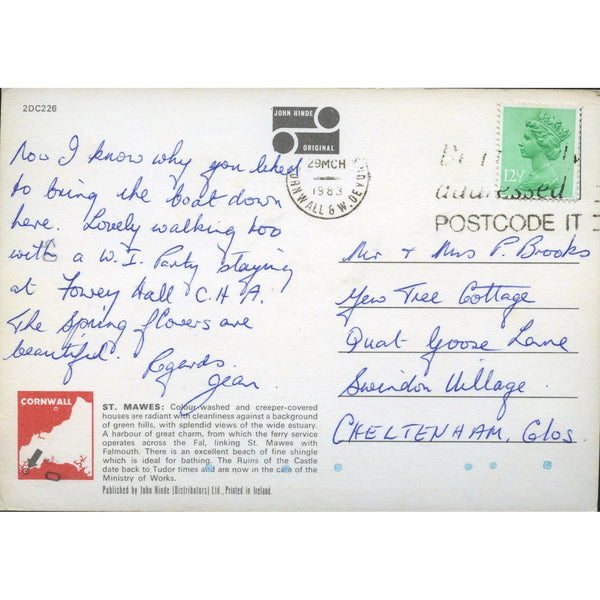 2DC226
JOHN HINDE
ORIGINAL
29MCH
1983
CORNWALL & W. DEVON
12½
addressed
POSTCODE IT
Now I know why you liked
to bring the boat down
here. Lovely walking too
with a W.I. Party staying
at Fowey Hall C.H.A.
The Spring flowers are
beautiful.
Regards
Jean.
Mr + Mrs P. Brooks
Yew Tree Cottage
Quat Goose Lane
Swindon Village
CHELTENHAM, Glos.
CORNWALL
ST. MAWES: Colour-washed and creeper-covered
houses are radiant with cleanliness against a background
of green hills, with splendid views of the wide estuary.
A harbour of great charm, from which the ferry service
operates across the Fal, linking St. Mawes with
Falmouth. There is an excellent beach of fine shingle
which is ideal for bathing. The Ruins of the Castle
date back to Tudor times and are now in the care of the
Ministry of Works.
Published by John Hinde (Distributors) Ltd., Printed in Ireland.